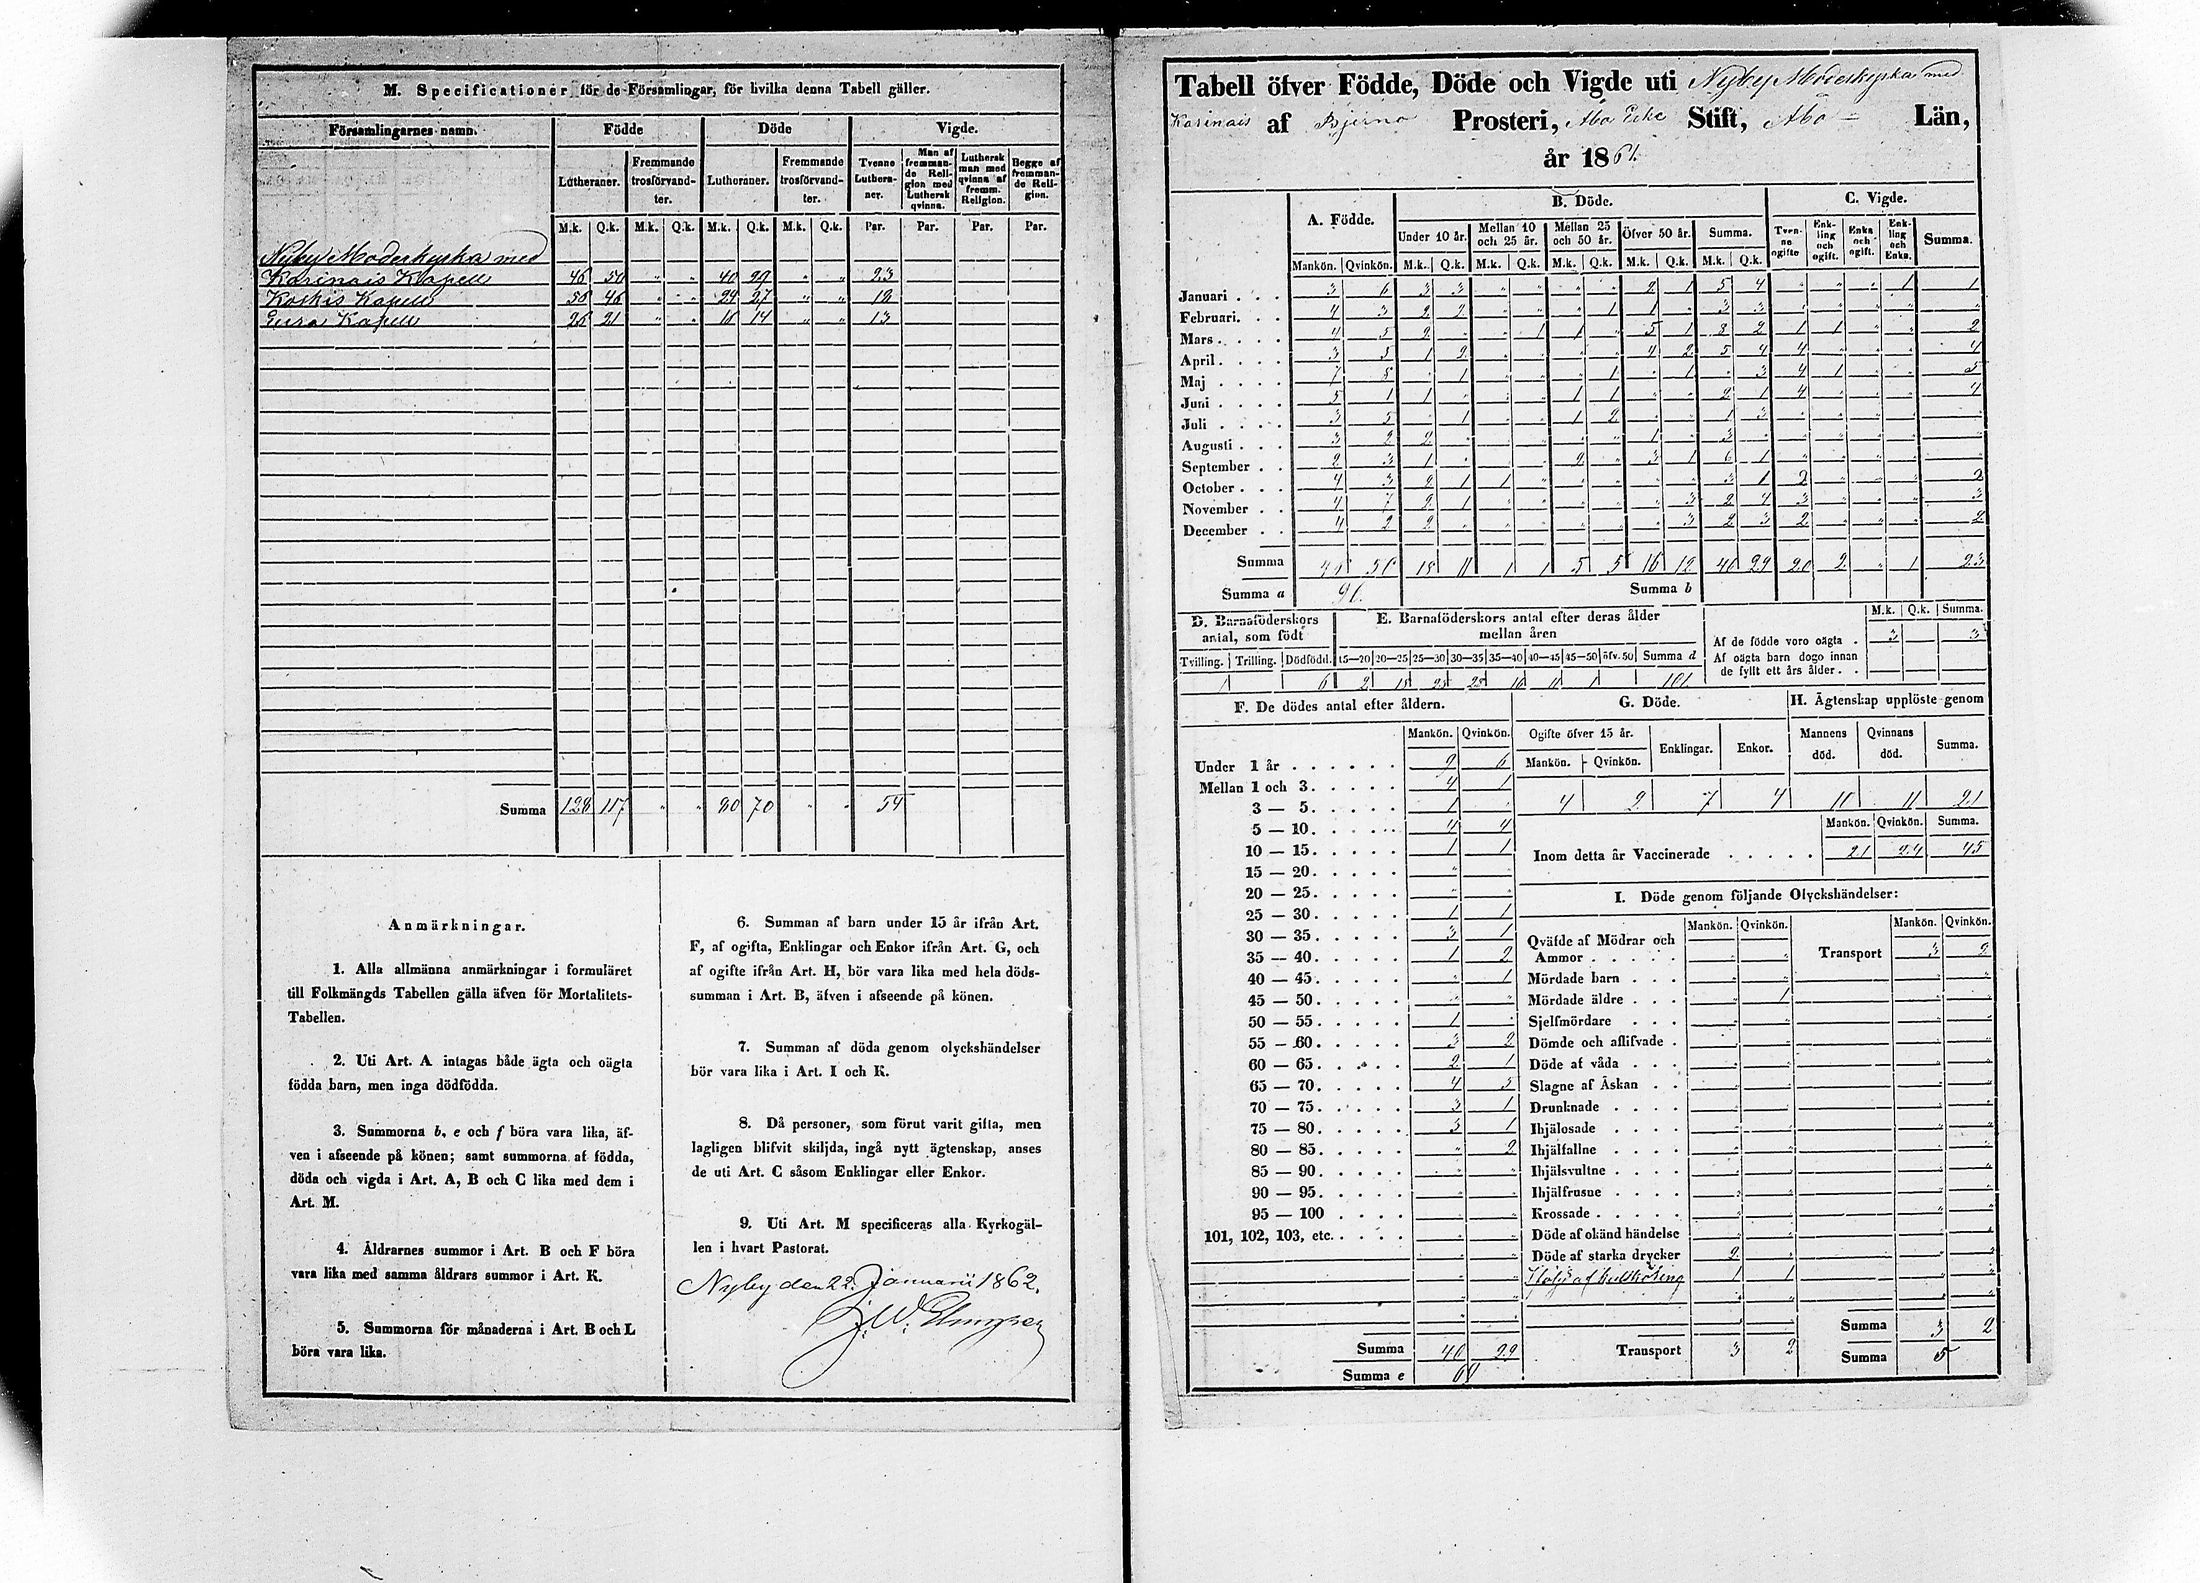 M. Specificationer för de Församlingar, för hvilka denna Tabell gäller.
Församlingarnes namn. Födde Döde Vigde.
Lutheraner. Fremmande trosförvandter. Lutheraner. Fremmande trosförvandter. Tvenne Lutheraner. Man af fremmande Religion med Luthersk qvinna. Luthersk man med qvinna af fremm. Religion. Begge af fremmande Religion.
M.k. Q.k. M.k. Q.k. M.k. Q.k. M.k. Q.k. Par. Par. Par. Par.
Nyby Moderkyrka med
Karinais Kapell 46 50 " " 40 29 " " 23
Koskis Kapell 56 46 " " 24 27 " " 18
Eura Kapell 26 21 " " 16 14 " " 13
Summa 128 117 " " 80 70 " " 54
Anmärkningar.
1. Alla allmänna anmärkningar i formuläret
till Folkmängds Tabellen gälla äfven för Mortalitets-
Tabellen.
2. Uti Art. A intagas både ägta och oägta
födda barn, men inga dödfödda.
3. Summorna b, e och f böra vara lika, äf-
ven i afseende på könen; samt summorna af födda,
döda och vigda i Art. A, B och C lika med dem i
Art. M.
4. Åldrarnes summor i Art. B och F böra
vara lika med samma åldrars summor i Art. K.
5. Summorna för månaderna i Art. B och L
böra vara lika.
6. Summan af barn under 15 år ifrån Art.
F, af ogifta, Enklingar och Enkor ifrån Art. G, och
af ogifte ifrån Art. H, bör vara lika med hela döds-
summan i Art. B, äfven i afseende på könen.
7. Summan af döda genom olyckshändelser
bör vara lika i Art. I och K.
8. Då personer, som förut varit gifta, men
lagligen blifvit skiljda, ingå nytt ägtenskap, anses
de uti Art. C såsom Enklingar eller Enkor.
9. Uti Art. M specificeras alla Kyrkogäl-
len i hvart Pastorat.
Nyby den 22. Januarii 1862.
J. W.
Tabell öfver Födde, Döde och Vigde uti Nyby Moderkyrka med
Karinais af Bjerno Prosteri, Åbo Erke Stift, Åbo Län,
år 1861.
A. Födde. B. Döde. C. Vigde.
Under 10 år. Mellan 10 och 25 år. Mellan 25 och 50 år. Öfver 50 år. Summa. Tvenne ogifte Enkling och ogift. Enka och ogift. Enkling och Enka. Summa.
Mankön. Qvinkön. M.k. Q.k. M.k. Q.k. M.k. Q.k. M.k. Q.k. M.k. Q.k.
Januari . . . 3 6 3 3 " " " " 2 1 5 4 " " " 1 1
Februari. . . 4 3 2 2 " " " 1 1 " 3 3 " " " " "
Mars . . . . 4 5 2 " " 1 1 " 5 1 8 2 1 1 " " 2
April . . . . 3 5 1 2 " " " " 4 2 5 4 4 " " " 4
Maj . . . . 7 8 " 1 " " " 1 " 1 " 3 4 1 " " 5
Juni . . . . 5 1 1 " " " 1 1 " " 2 1 4 " " " 4
Juli . . . . 3 5 " 1 " " 1 2 " " 1 3 " " " " "
Augusti . . . 3 2 2 " " " " " 1 " 3 " " " " " "
September . . 2 3 1 " " " 2 " 3 1 6 1 " " " " "
October . . . 4 3 2 1 1 " " " " " 3 1 2 " " " 2
November . . 4 7 2 1 " " " " " 3 2 4 3 " " " 3
December . . 4 2 2 " " " " " " 3 2 3 2 " " " 2
Summa 46 50 18 11 1 1 5 5 16 12 40 29 20 2 " 1 23
Summa a 96. Summa b
D. Barnaföderskors antal, som födt E. Barnaföderskors antal efter deras ålder mellan åren M.k. Q.k. Summa.
Af de födde voro oägta . 3 3
Af oägta barn dogo innan
de fyllt ett års ålder . .
Tvilling. Trilling. Dödfödd. 15—20 20—25 25—30 30—35 35—40 40—45 45—50 öfv. 50 Summa d
1 6 2 18 25 25 16 11 1 101
F. De dödes antal efter åldern. G. Döde. H. Ägtenskap upplöste genom
Mankön. Qvinkön. Ogifte öfver 15 år. Enklingar. Enkor. Mannens död. Qvinnans död. Summa.
Mankön. Qvinkön.
4 2 7 4 10 11 21
Under 1 år . . . . . . 9 6
Mellan 1 och 3. . . . . 4 1
3 — 5. . . . . 1 "
5 — 10. . . . . 4 4
10 — 15. . . . . 1 1
15 — 20. . . . . " "
20 — 25. . . . . " "
25 — 30. . . . . 1 1
30 — 35. . . . . 3 1
35 — 40. . . . . 1 2
40 — 45. . . . . " 1
45 — 50. . . . . " "
50 — 55. . . . . 1 "
55 — 60. . . . . 3 2
60 — 65. . . . . 2 1
65 — 70. . . . . 4 5
70 — 75. . . . . 3 1
75 — 80. . . . . 3 1
80 — 85. . . . . " 2
85 — 90. . . . . " "
90 — 95. . . . . " "
95 — 100 . . . . " "
101, 102, 103, etc. . . . . " "
Summa 40 29
Summa e 69
Mankön. Qvinkön. Summa.
Inom detta år Vaccinerade . . . . . 21 24 45
I. Döde genom följande Olyckshändelser:
Mankön. Qvinkön. Mankön. Qvinkön.
Qväfde af Mödrar och
Ammor . . . . . " " Transport 3 2
Mördade barn . . . " "
Mördade äldre . . . " 1
Sjelfmördare . . . " "
Dömde och aflifvade . " "
Döde af våda . . . " "
Slagne af Åskan . . " "
Drunknade . . . . " "
Ihjälosade . . . . " "
Ihjälfallne . . . . " "
Ihjälsvultne . . . . " "
Ihjälfrusne . . . . " "
Krossade . . . . . " "
Döde af okänd händelse " "
Döde af starka drycker 2 "
af 1 1
Summa 3 2
Transport 3 2 Summa 5